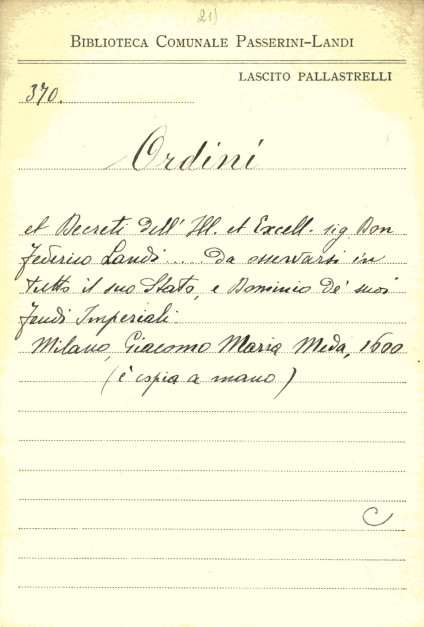 21)
BIBLIOTECA COMUNALE PASSERINI-LANDI
LASCITO PALLASTRELLI
370.
Ordini
et Decreti dell' Ill. et Excell. sig. Don
Federico Landi .... da osservarsi in
tutto il suo Stato, e Dominio de' suoi
feudi Imperiali.
Milano, Giacomo Maria Meda, 1600
(è copia a mano)
C